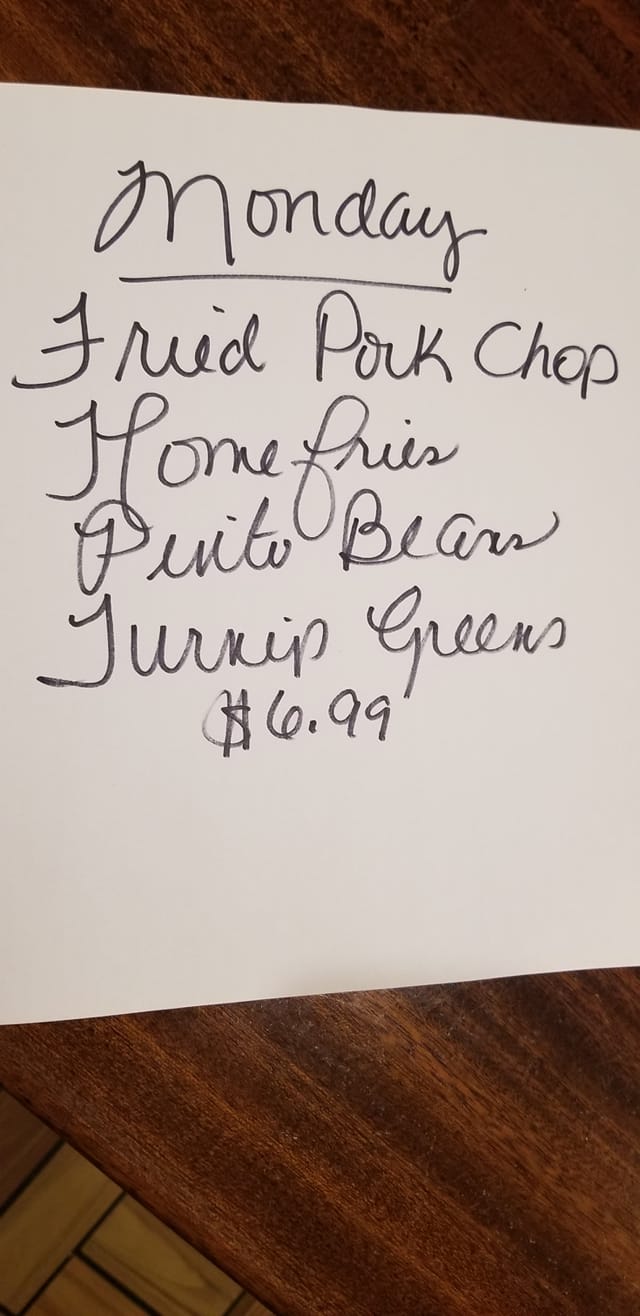 Monday
Fried Pork Chop
Homefries
Pinto Beans
Turnip Greens
$6.99